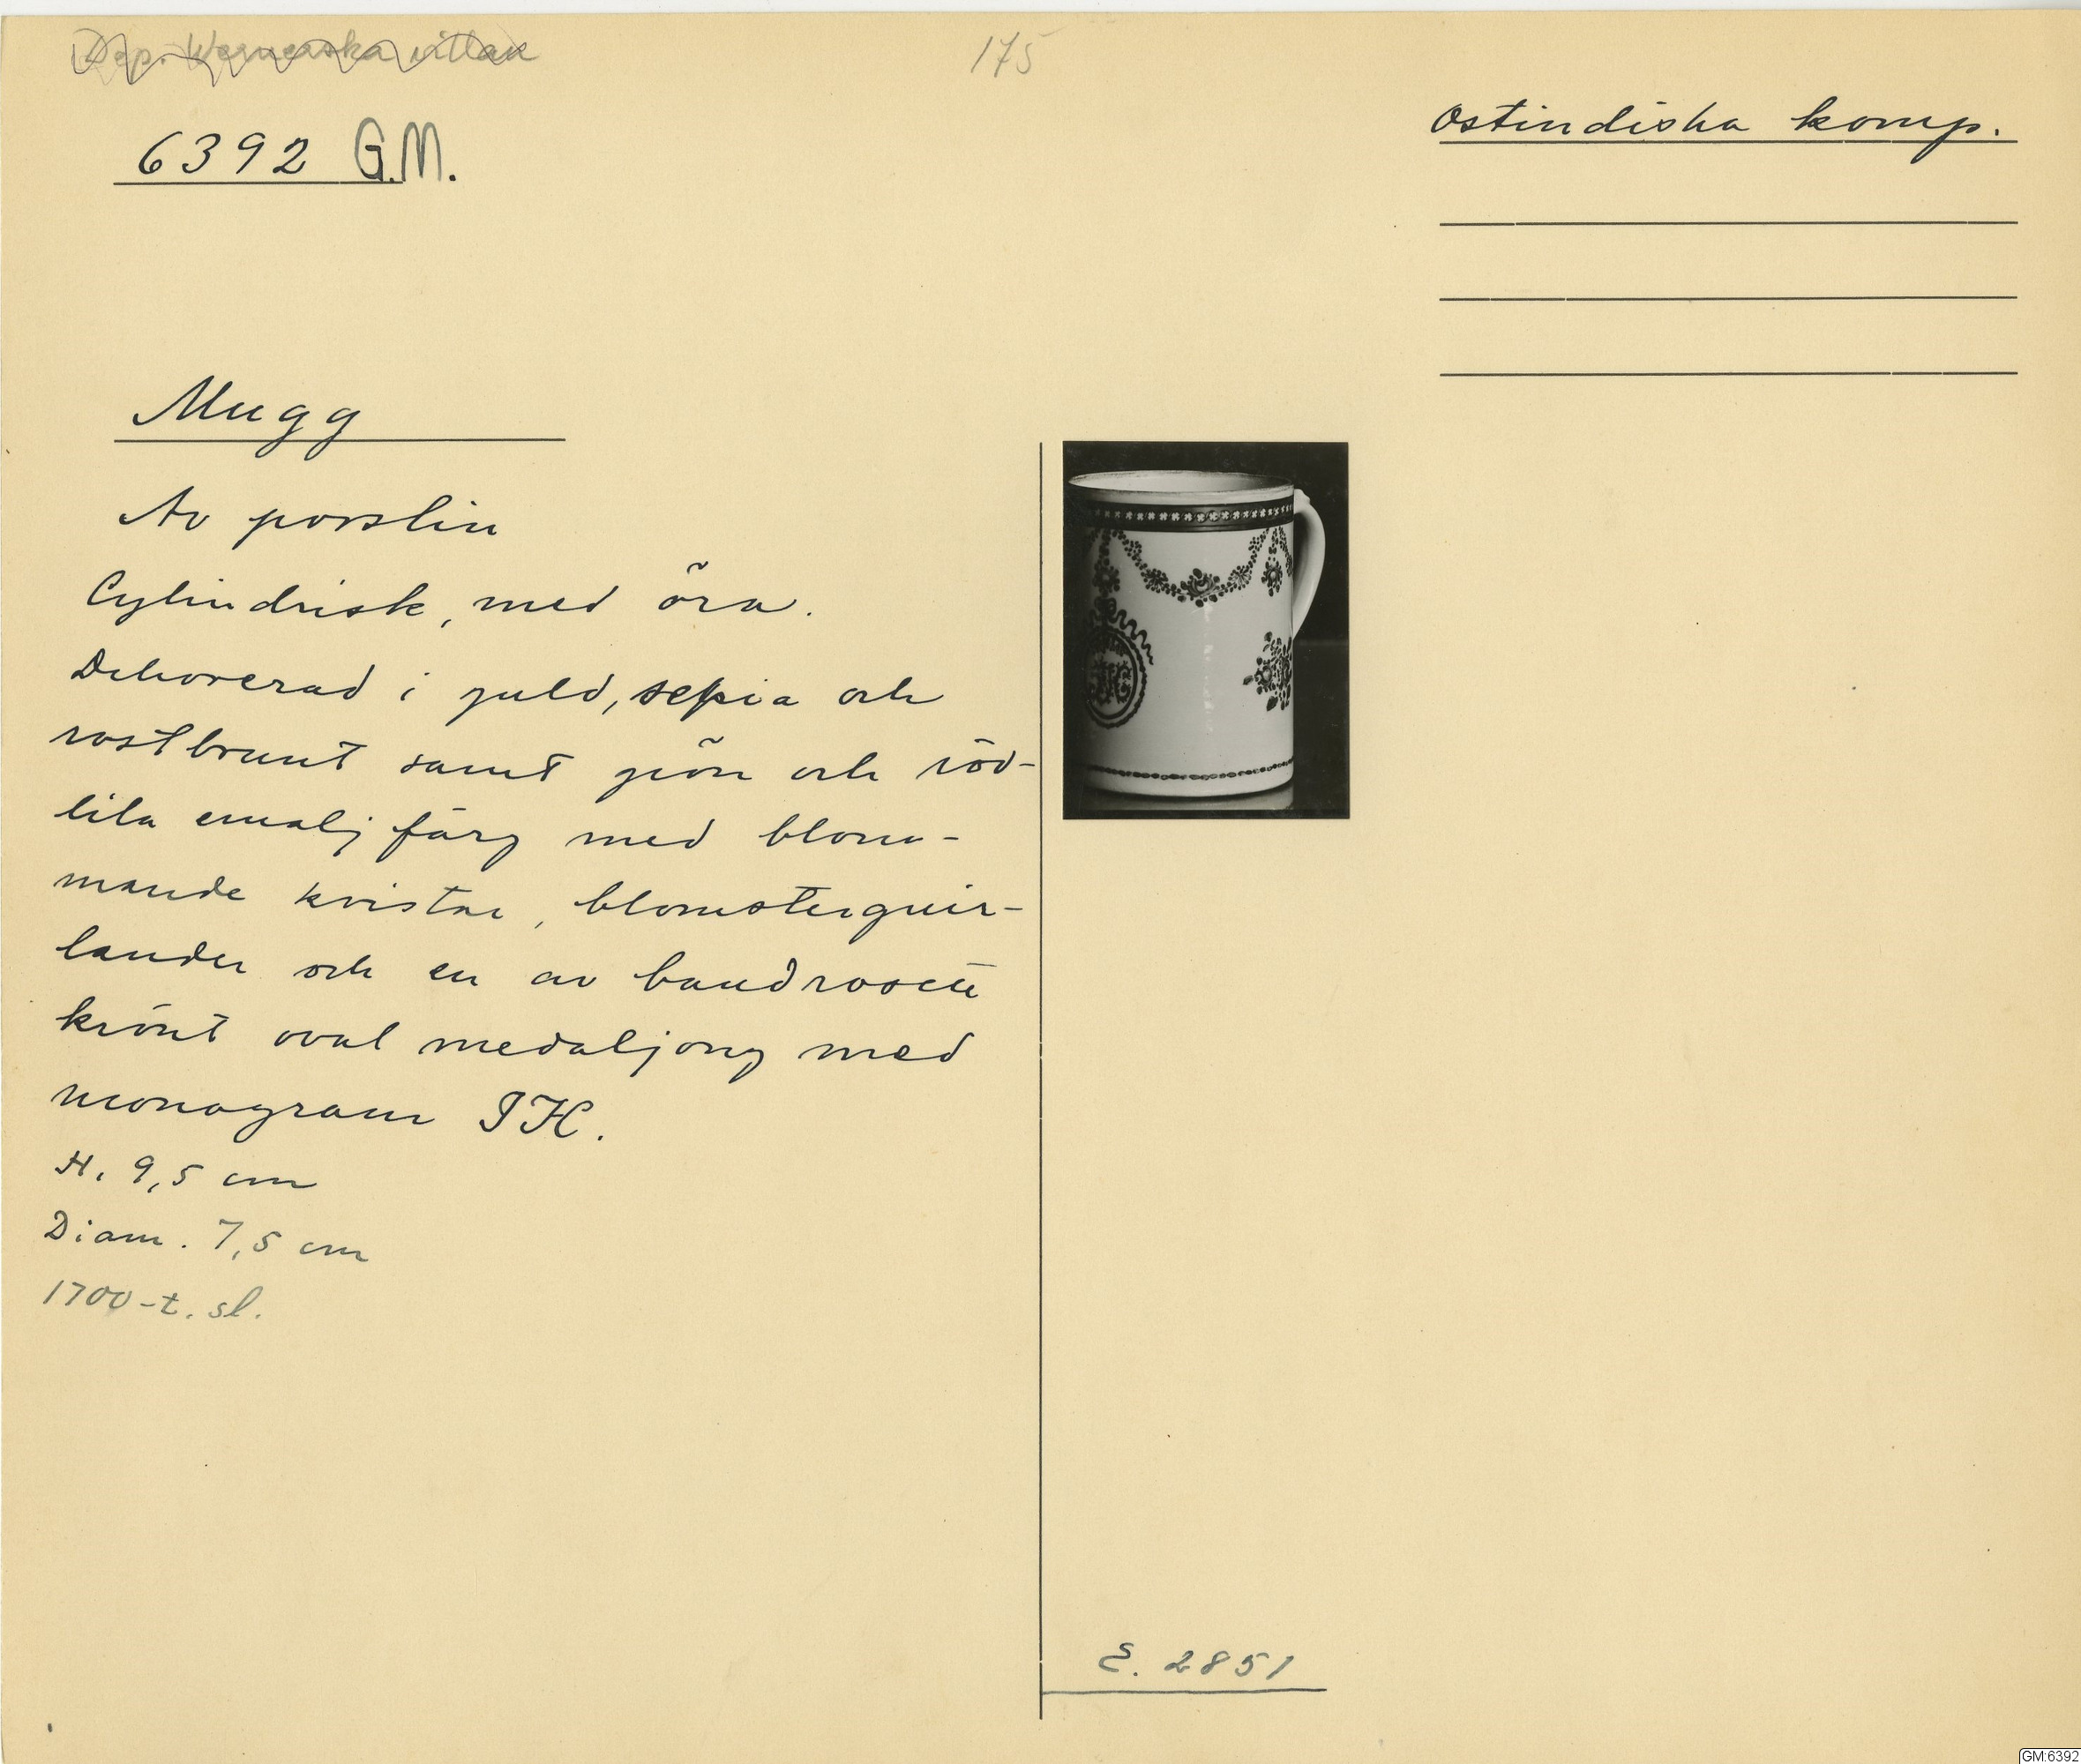 Dep. Wernerska villan
175
Ostindiska komp.
6392 G.M.
Mugg
Av porslin
Cylindrisk, med öra.
Dekorerad i guld, sepia och
rostbrunt samt grön och röd-
lila emaljfärg med blom-
mande kvistar, blomsterguir-
lander och en av bandrosett
krönt oval medaljong med
monogram IH.
H. 9,5 cm
Diam. 7,5 cm
1700-t. sl.
E. 2851
GM:6392